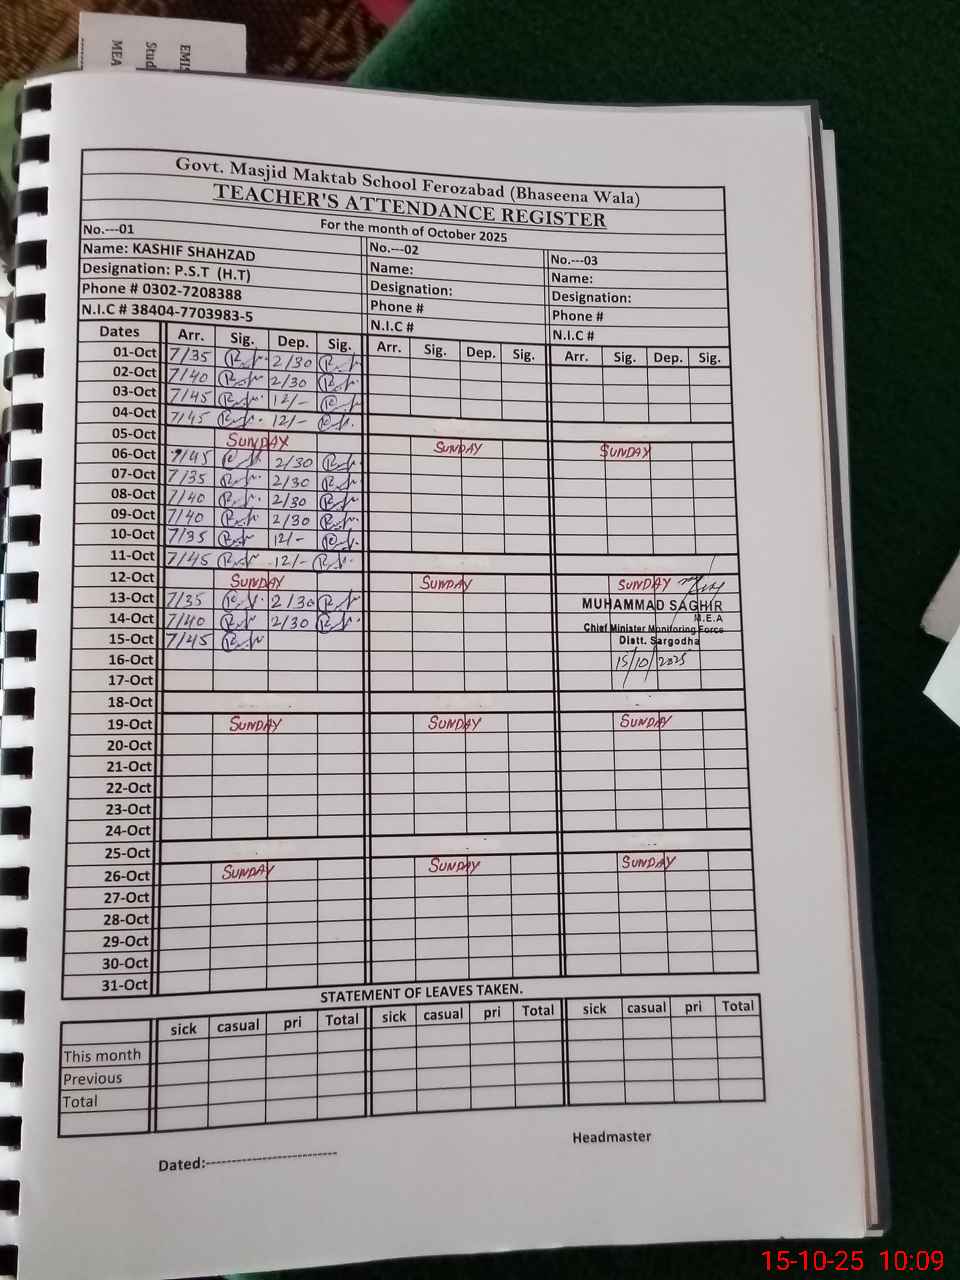 EMIS
Stud
MEA
Govt. Masjid Maktab School Ferozabad (Bhaseena Wala)
TEACHER'S ATTENDANCE REGISTER
For the month of October 2025
No.---01 No.---02 No.---03
Name: KASHIF SHAHZAD Name: Name:
Designation: P.S.T (H.T) Designation: Designation:
Phone # 0302-7208388 Phone # Phone #
N.I.C # 38404-7703983-5 N.I.C # N.I.C #
Dates Arr. Sig. Dep. Sig. Arr. Sig. Dep. Sig. Arr. Sig. Dep. Sig.
01-Oct 7/35 2/30
02-Oct 7/40 2/30
03-Oct 7/45 12/-
04-Oct 7/45 12/-
05-Oct SUNDAY SUNDAY SUNDAY
06-Oct 7/45 2/30
07-Oct 7/35 2/30
08-Oct 7/40 2/30
09-Oct 7/40 2/30
10-Oct 7/35 12/-
11-Oct 7/45 12/-
12-Oct SUNDAY SUNDAY SUNDAY
13-Oct 7/35 2/30 MUHAMMAD SAGHIR
14-Oct 7/40 2/30 M.E.A
Chief Minister Monitoring Force
15-Oct 7/45 Distt. Sargodha
16-Oct 15/10/2025
17-Oct
18-Oct
19-Oct SUNDAY SUNDAY SUNDAY
20-Oct
21-Oct
22-Oct
23-Oct
24-Oct
25-Oct
26-Oct SUNDAY SUNDAY SUNDAY
27-Oct
28-Oct
29-Oct
30-Oct
31-Oct
STATEMENT OF LEAVES TAKEN.
sick casual pri Total sick casual pri Total sick casual pri Total
This month
Previous
Total
Headmaster
Dated:--------------------------
15-10-25 10:09